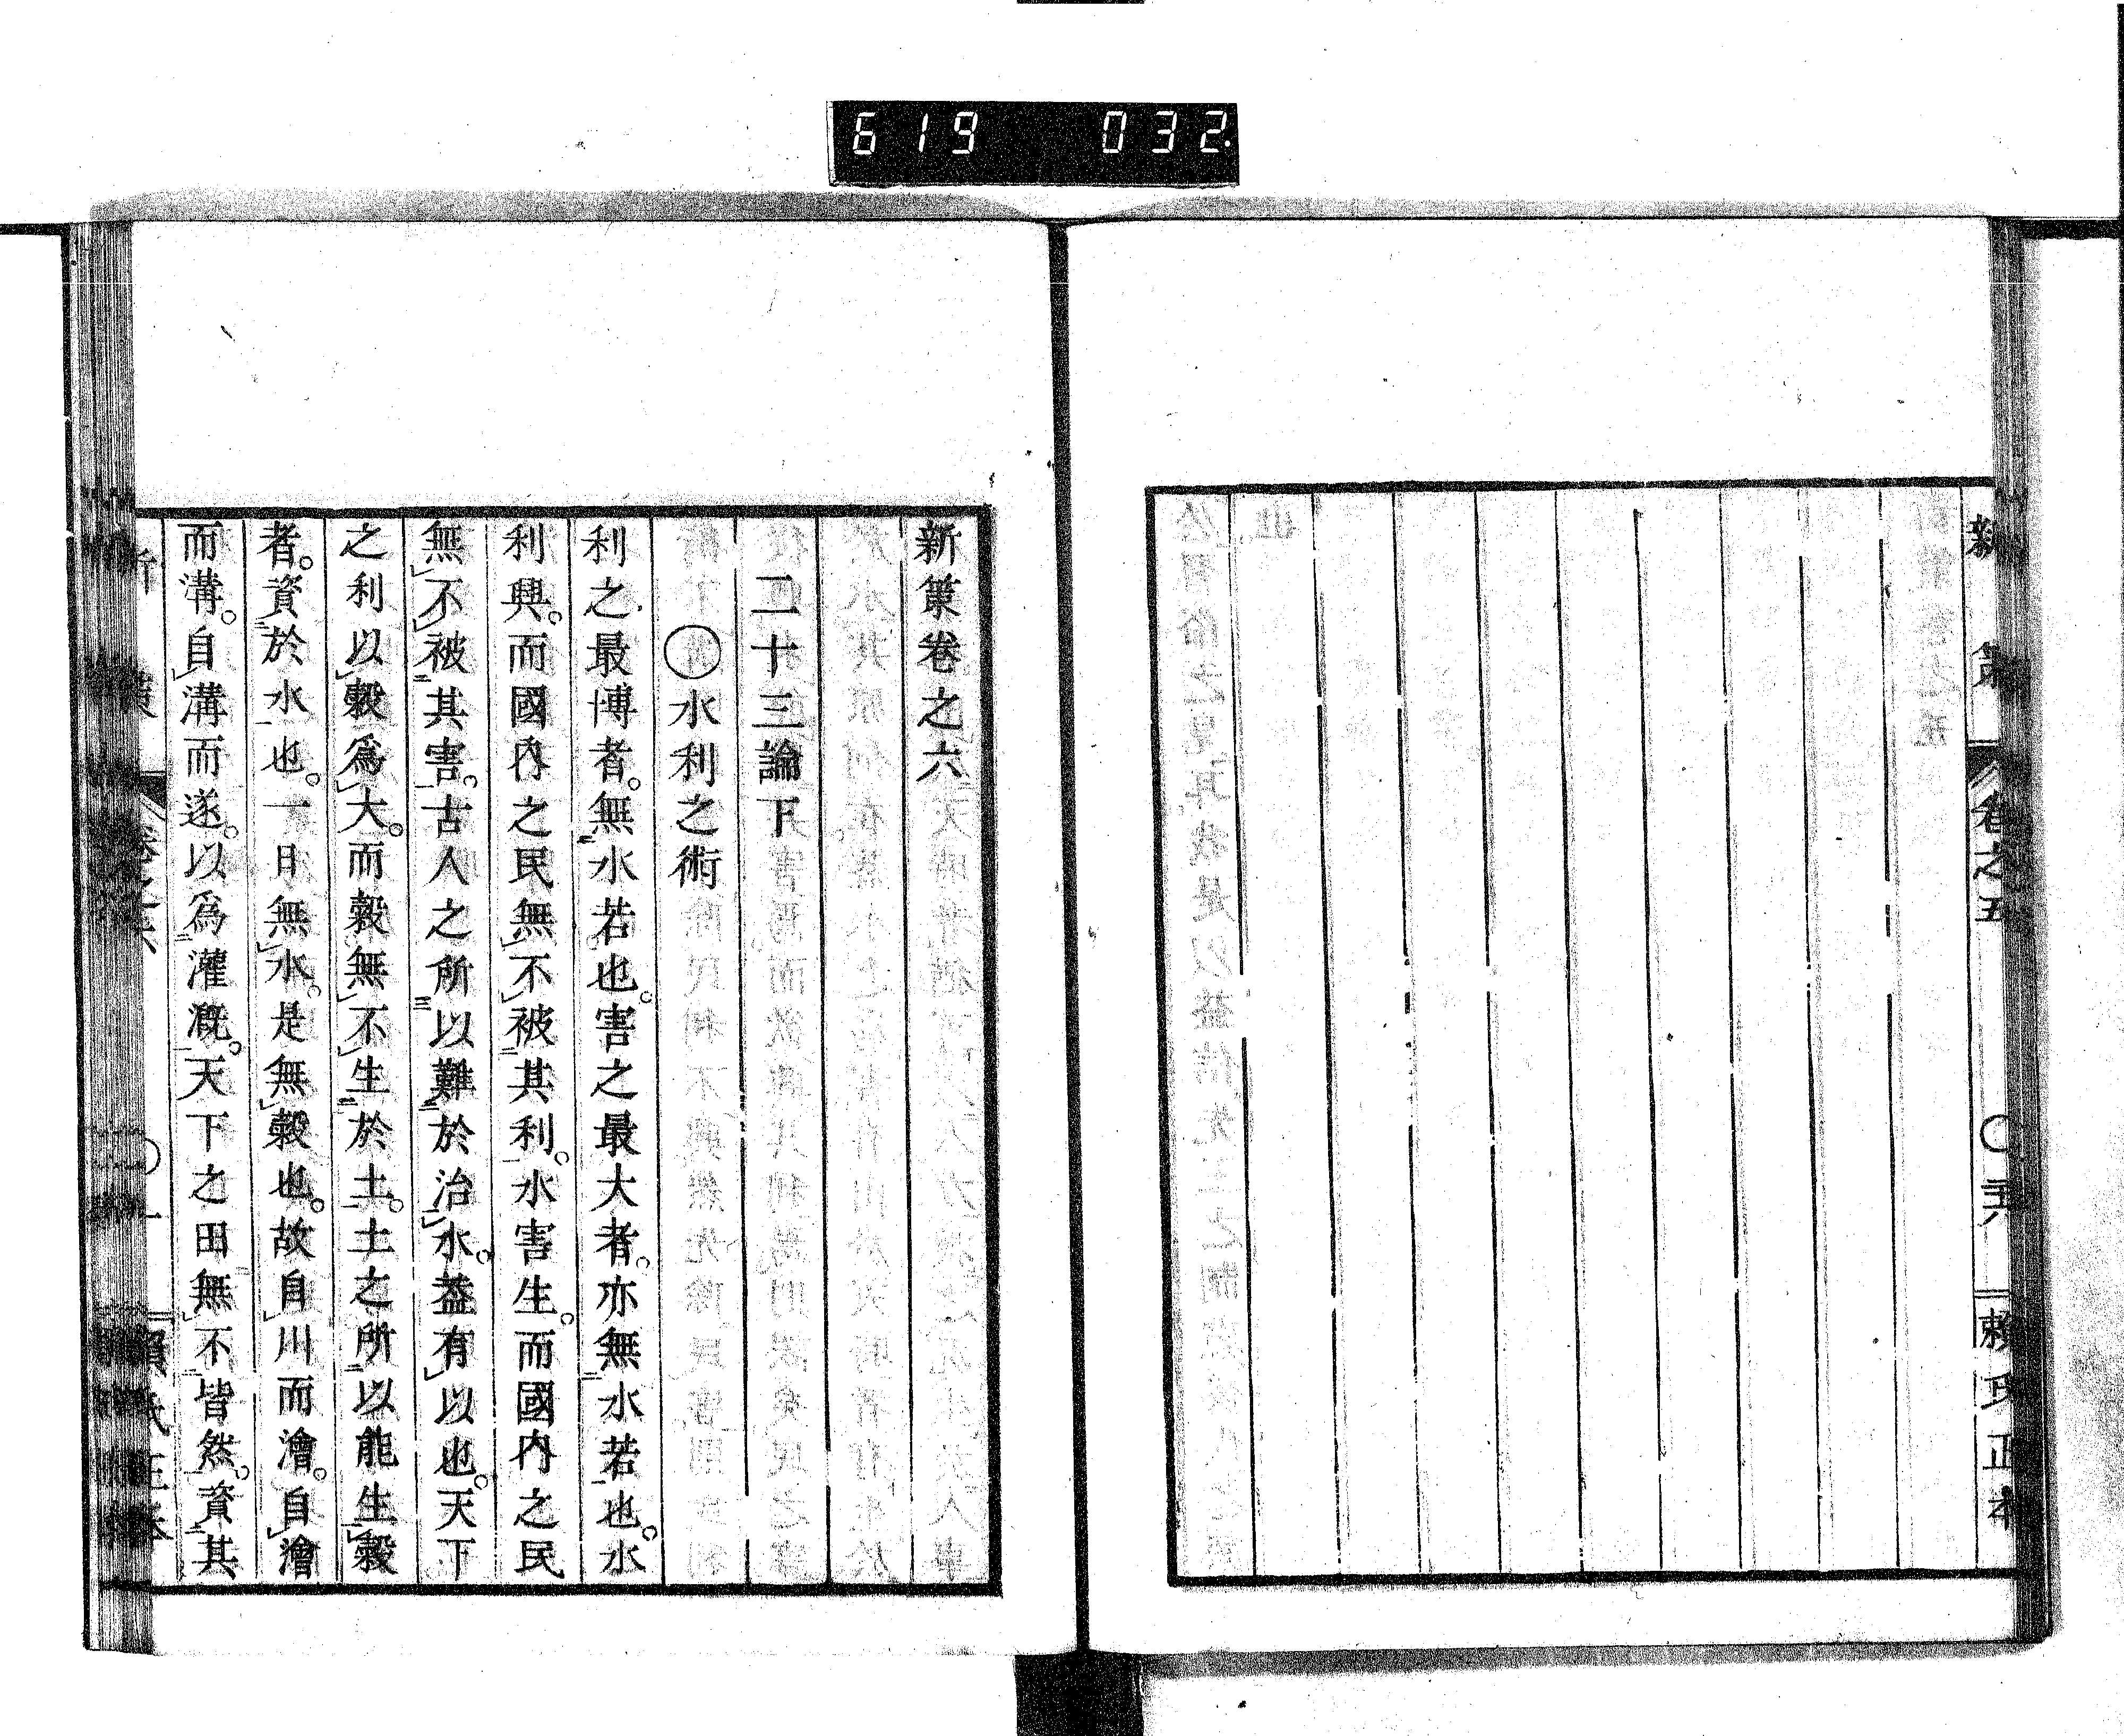 619 032
新策 卷之五 〇 賴氏正本
新策卷之六
二十三論下
〇水利之術
利之最博者。無水若也。害之最大者。亦無水若也。水
利興。而國內之民無不被其利。水害生。而國內之民
無不被其害。古人之所以難於治水。蓋有以也。天下
之利以穀爲大。而穀無不生於土。土之所以能生穀
者。資於水也。一日無水。是無穀也。故自川而澮。自澮
而溝。自溝而遂。以爲灌漑。天下之田無不皆然。資其